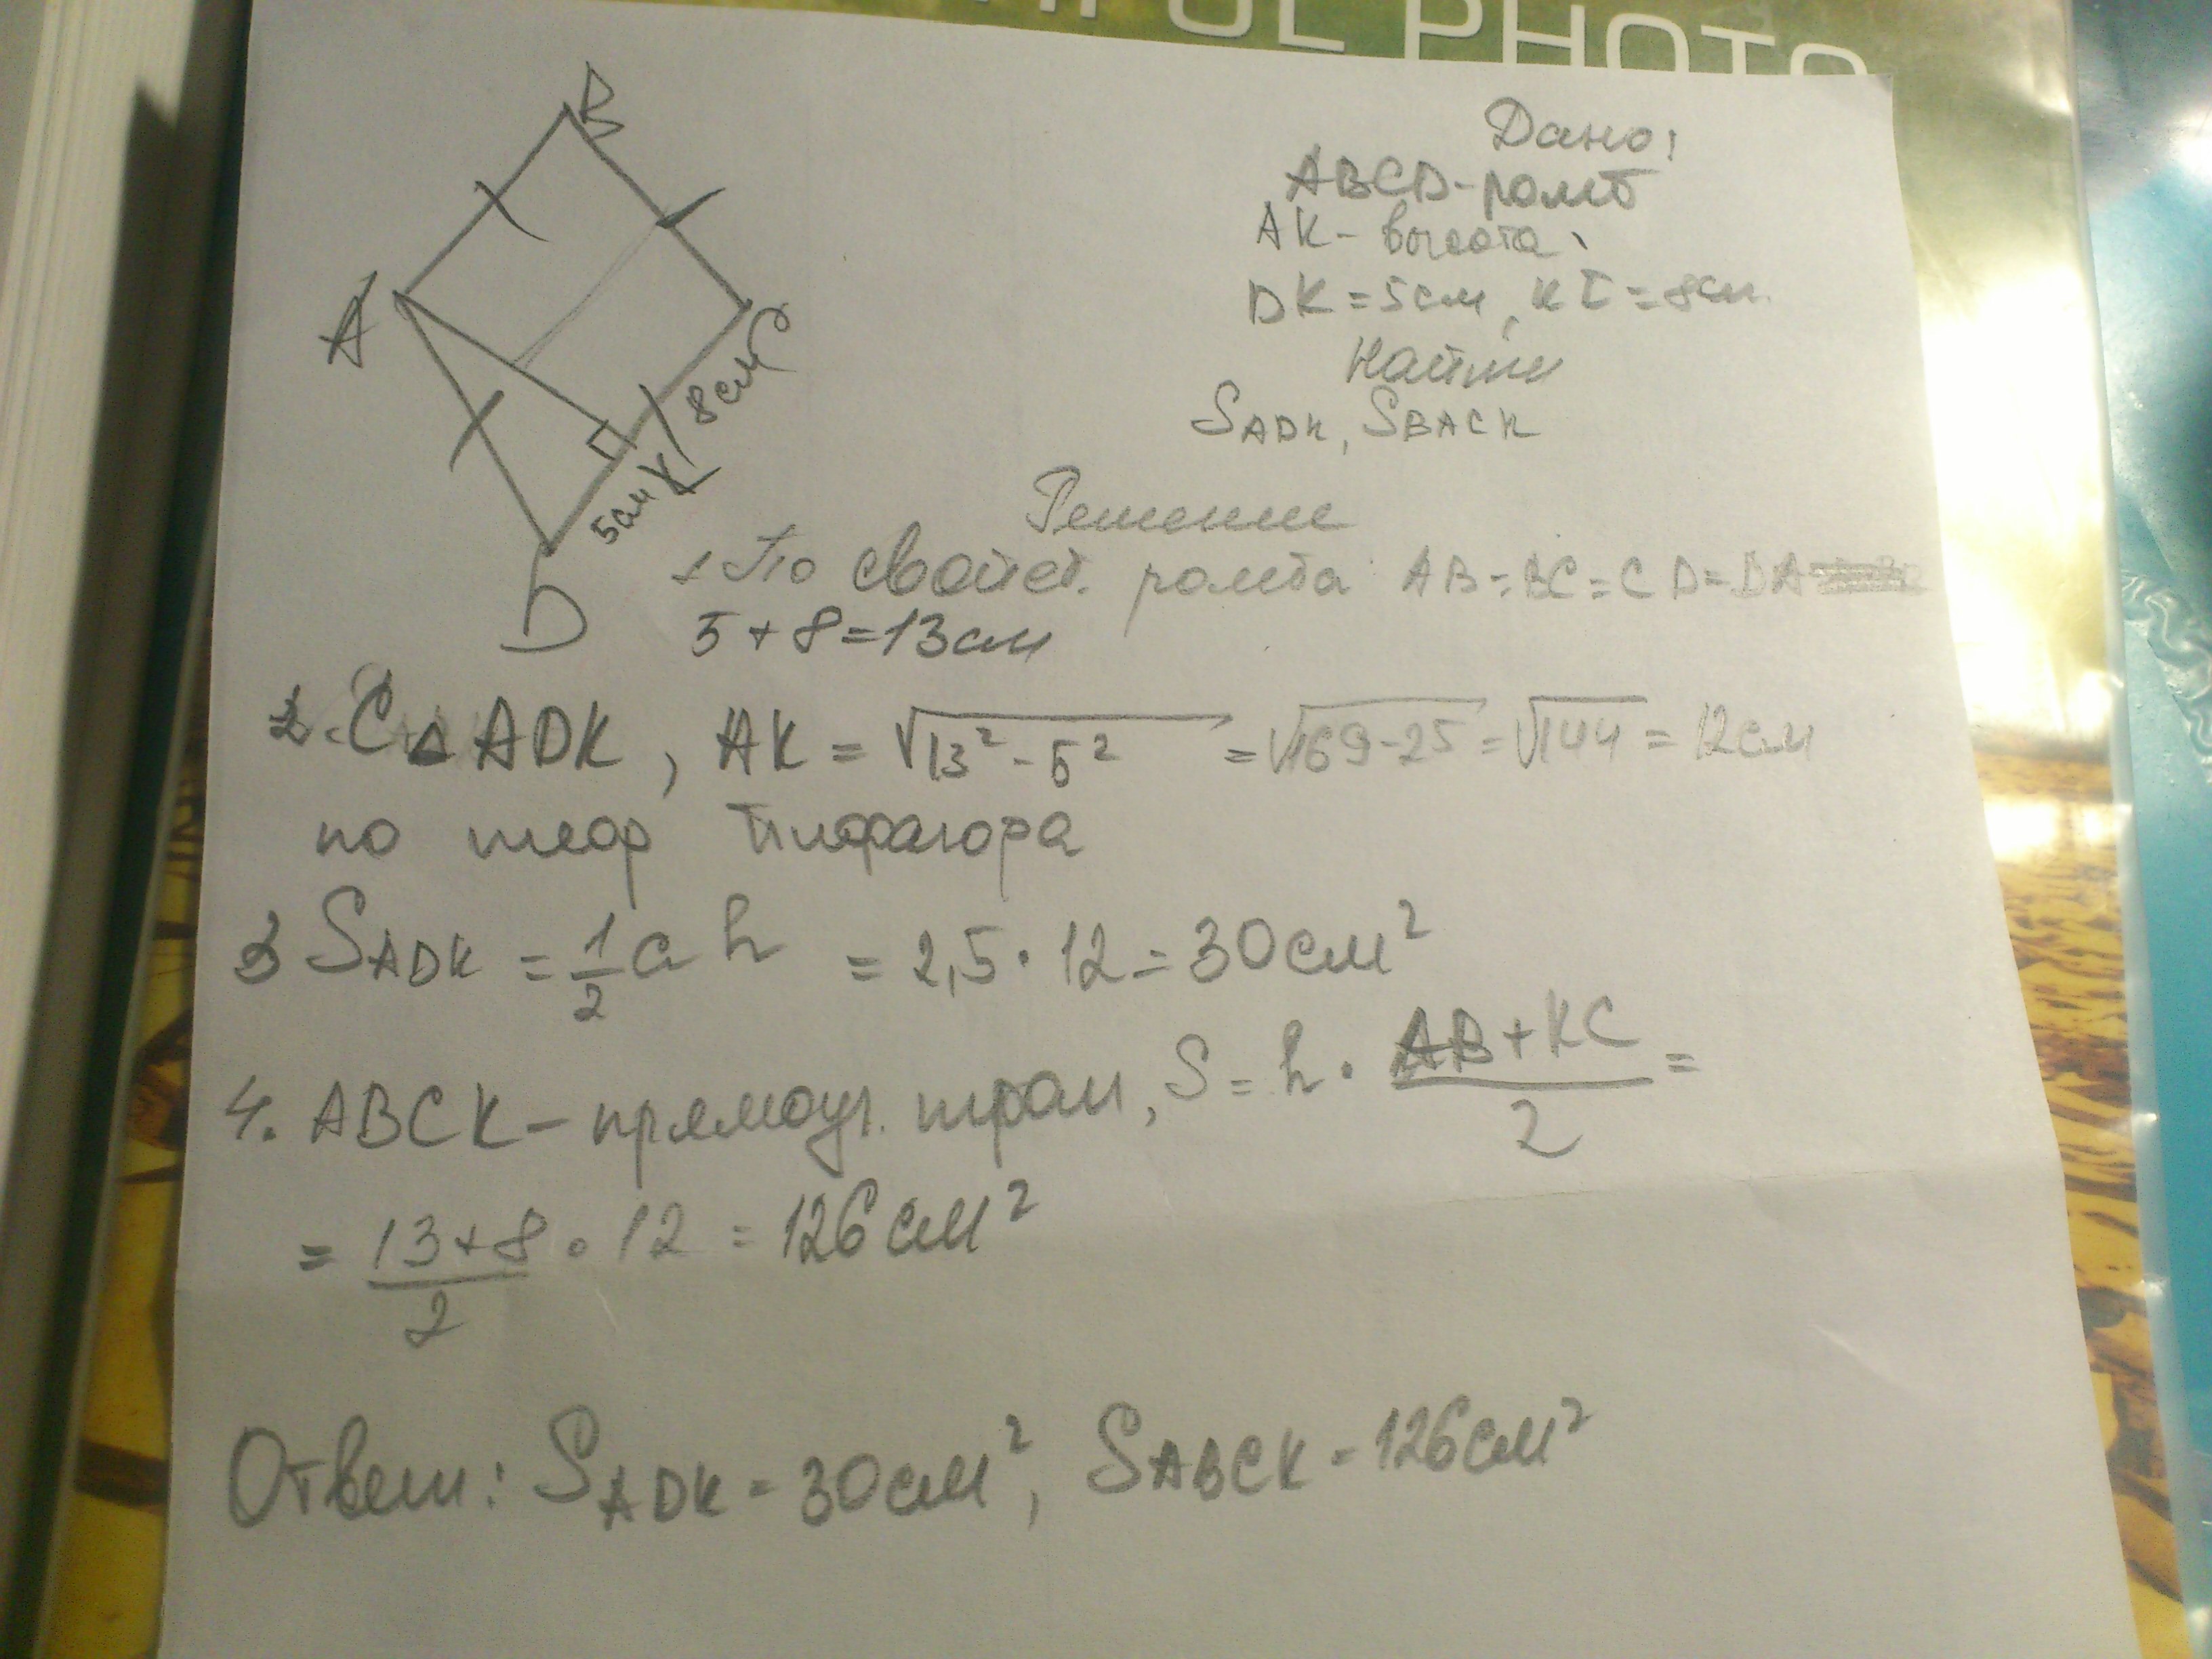 PHOTO
B
A
C
8см
5см K
D
Дано:
ABCD - ромб
AK - высота
DK = 5см, KC = 8см.
Найти
SADK, SBACK
Решение
1 По свойст. ромба AB = BC = CD = DA
5 + 8 = 13см
2. С △ ADK, AK = √13² - 5² = √169 - 25 = √144 = 12см
по теор Пифагора
3 SADK = 1/2 a h = 2,5 · 12 = 30см²
4. ABCK - прямоуг. трап, S = h · AB + KC / 2 =
= 13 + 8 / 2 · 12 = 126см²
Ответ: SADK = 30см², SABCK = 126см²